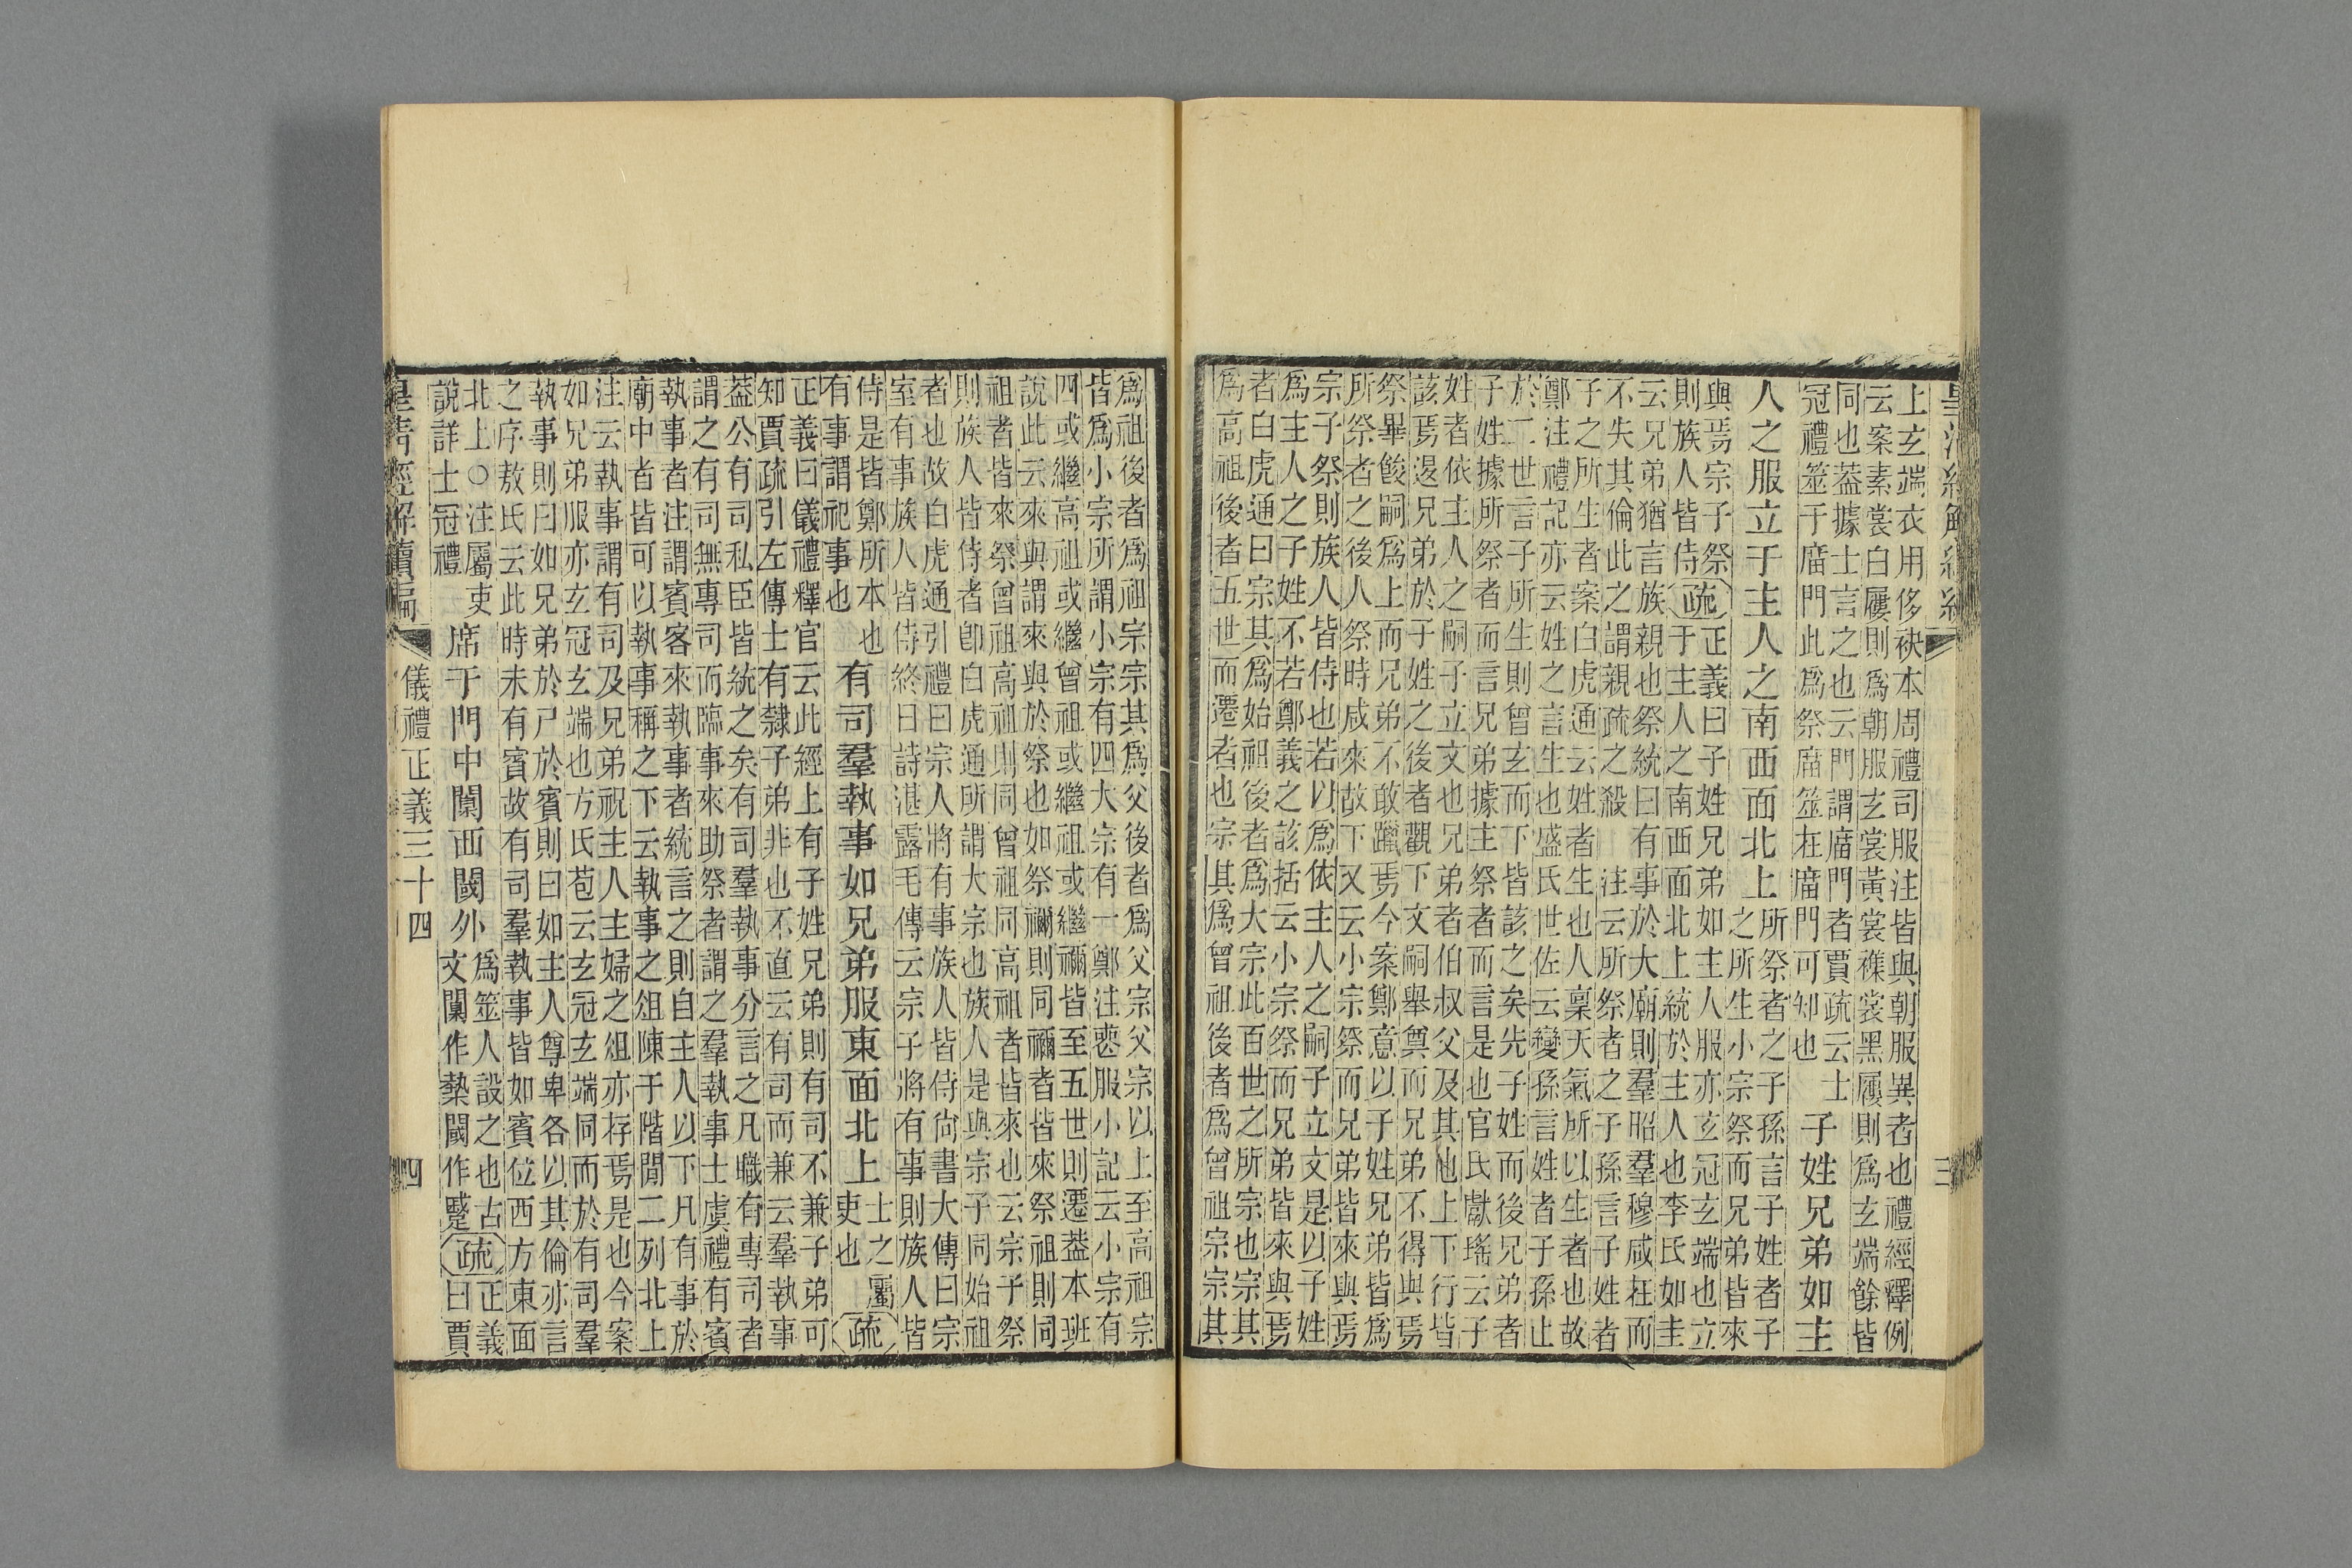 三
上玄端衣用侈袂本周禮司服注皆與朝服異者也禮經釋例
云案素裳白屨則爲朝服玄裳黃裳襍裳黑屨則爲玄端餘皆
同也蓋據士言之也云門謂廟門者賈疏云士
冠禮筮于廟門此爲祭廟筮在廟門可知也
子姓兄弟如主
人之服立于主人之南西面北上
所祭者之子孫言子姓者子
之所生小宗祭而兄弟皆來
與焉宗子祭
則族人皆侍
疏
正義曰子姓兄弟如主人服亦玄冠玄端也立
于主人之南西面北上統於主人也李氏如圭
云兄弟猶言族親也祭統曰有事於大廟則羣昭羣穆咸在而
不失其倫此之謂親疏之殺 注云所祭者之子孫言子姓者
子之所生者案白虎通云姓者生也人稟天氣所以生者也故
鄭注禮記亦云姓之言生也盛氏世佐云變孫言姓者子孫止
於二世言子所生則曾玄而下皆該之矣先子姓而後兄弟者
子姓據所祭者而言兄弟據主祭者而言是也官氏獻瑤云子
姓者依主人之嗣子立文也兄弟者伯叔父及其他上下行皆
該焉退兄弟於子姓之後者觀下文嗣舉奠而兄弟不得與焉
祭畢餕嗣爲上而兄弟不敢躐焉今案鄭意以子姓兄弟皆爲
所祭者之後人祭時咸來故下又云小宗祭而兄弟皆來與焉
宗子祭則族人皆侍也若以爲依主人之嗣子立文是以子姓
爲主人之子姓不若鄭義之該括云小宗祭而兄弟皆來與焉
者白虎通曰宗其爲始祖後者爲大宗此百世之所宗也宗其
爲高祖後者五世而遷者也宗其爲曾祖後者爲曾祖宗宗其
爲祖後者爲祖宗宗其爲父後者爲父宗父宗以上至高祖宗
皆爲小宗所謂小宗有四大宗有一鄭注䘮服小記云小宗有
四或繼高祖或繼曾祖或繼祖或繼禰皆至五世則遷蓋本班
說此云來與謂來與於祭也如祭禰則同禰者皆來祭祖則同
祖者皆來祭曾祖高祖則同曾祖同高祖者皆來也云宗子祭
則族人皆侍者卽白虎通所謂大宗也族人是與宗子同始祖
者也故白虎通引禮曰宗人將有事族人皆侍尙書大傳曰宗
室有事族人皆侍終日詩湛露毛傳云宗子將有事則族人皆
侍是皆鄭所本也
有事謂祀事也
有司羣執事如兄弟服東面北上
士之屬
吏也
疏
正義曰儀禮釋官云此經上有子姓兄弟則有司不兼子弟可
知賈疏引左傳士有隸子弟非也不直云有司而兼云羣執事
蓋公有司私臣皆統之矣有司羣執事分言之凡職有專司者
謂之有司無專司而臨事來助祭者謂之羣執事士虞禮有賓
執事者注謂賓客來執事者統言之則自主人以下凡有事於
廟中者皆可以執事稱之下云執事之俎陳于階閒二列北上
注云執事謂有司及兄弟祝主人主婦之俎亦存焉是也今案
如兄弟服亦玄冠玄端也方氏苞云玄冠玄端同而於有司羣
執事則曰如兄弟於尸於賓則曰如主人尊卑各以其倫亦言
之序敖氏云此時未有賓故有司羣執事皆如賓位西方東面
北上○注屬吏
說詳士冠禮
席于門中闑西閾外
爲筮人設之也古
文闑作槷閾作蹙
疏
正義
曰賈
皇清經解續編
儀禮正義三十四
四